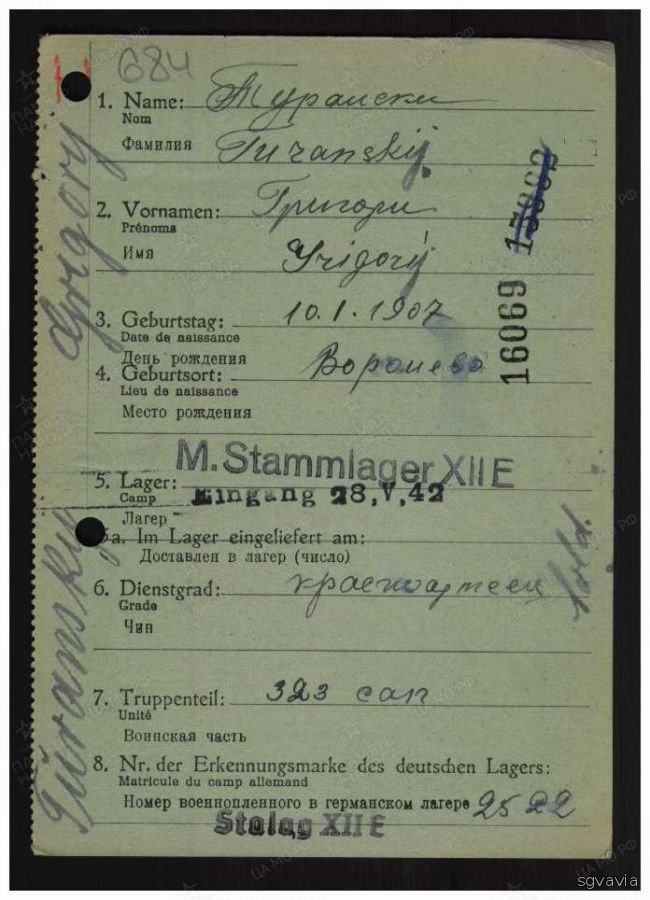 684
1. Name: Турански
Nom
Фамилия Turanskÿ
2. Vornamen: Григори
Prénoms
Имя Grigorÿ
3. Geburtstag: 10.1.1907
Date de naissance
День рождения
4. Geburtsort: Воронево
Lieu de naissance
Место рождения
M. Stammlager XII E
5. Lager: Eingang 28.V.42
Camp
Лагер
a. Im Lager eingeliefert am:
Доставлен в лагер (число)
6. Dienstgrad: красноармеец
Grade
Чин
Sold.
7. Truppenteil: 323 сап
Unité
Воинская часть
8. Nr. der Erkennungsmarke des deutschen Lagers:
Matricule du camp allemand
Номер военнопленного в германском лагере 2522
Stalag XII E
Turansky Grigory
16069
sgvavia